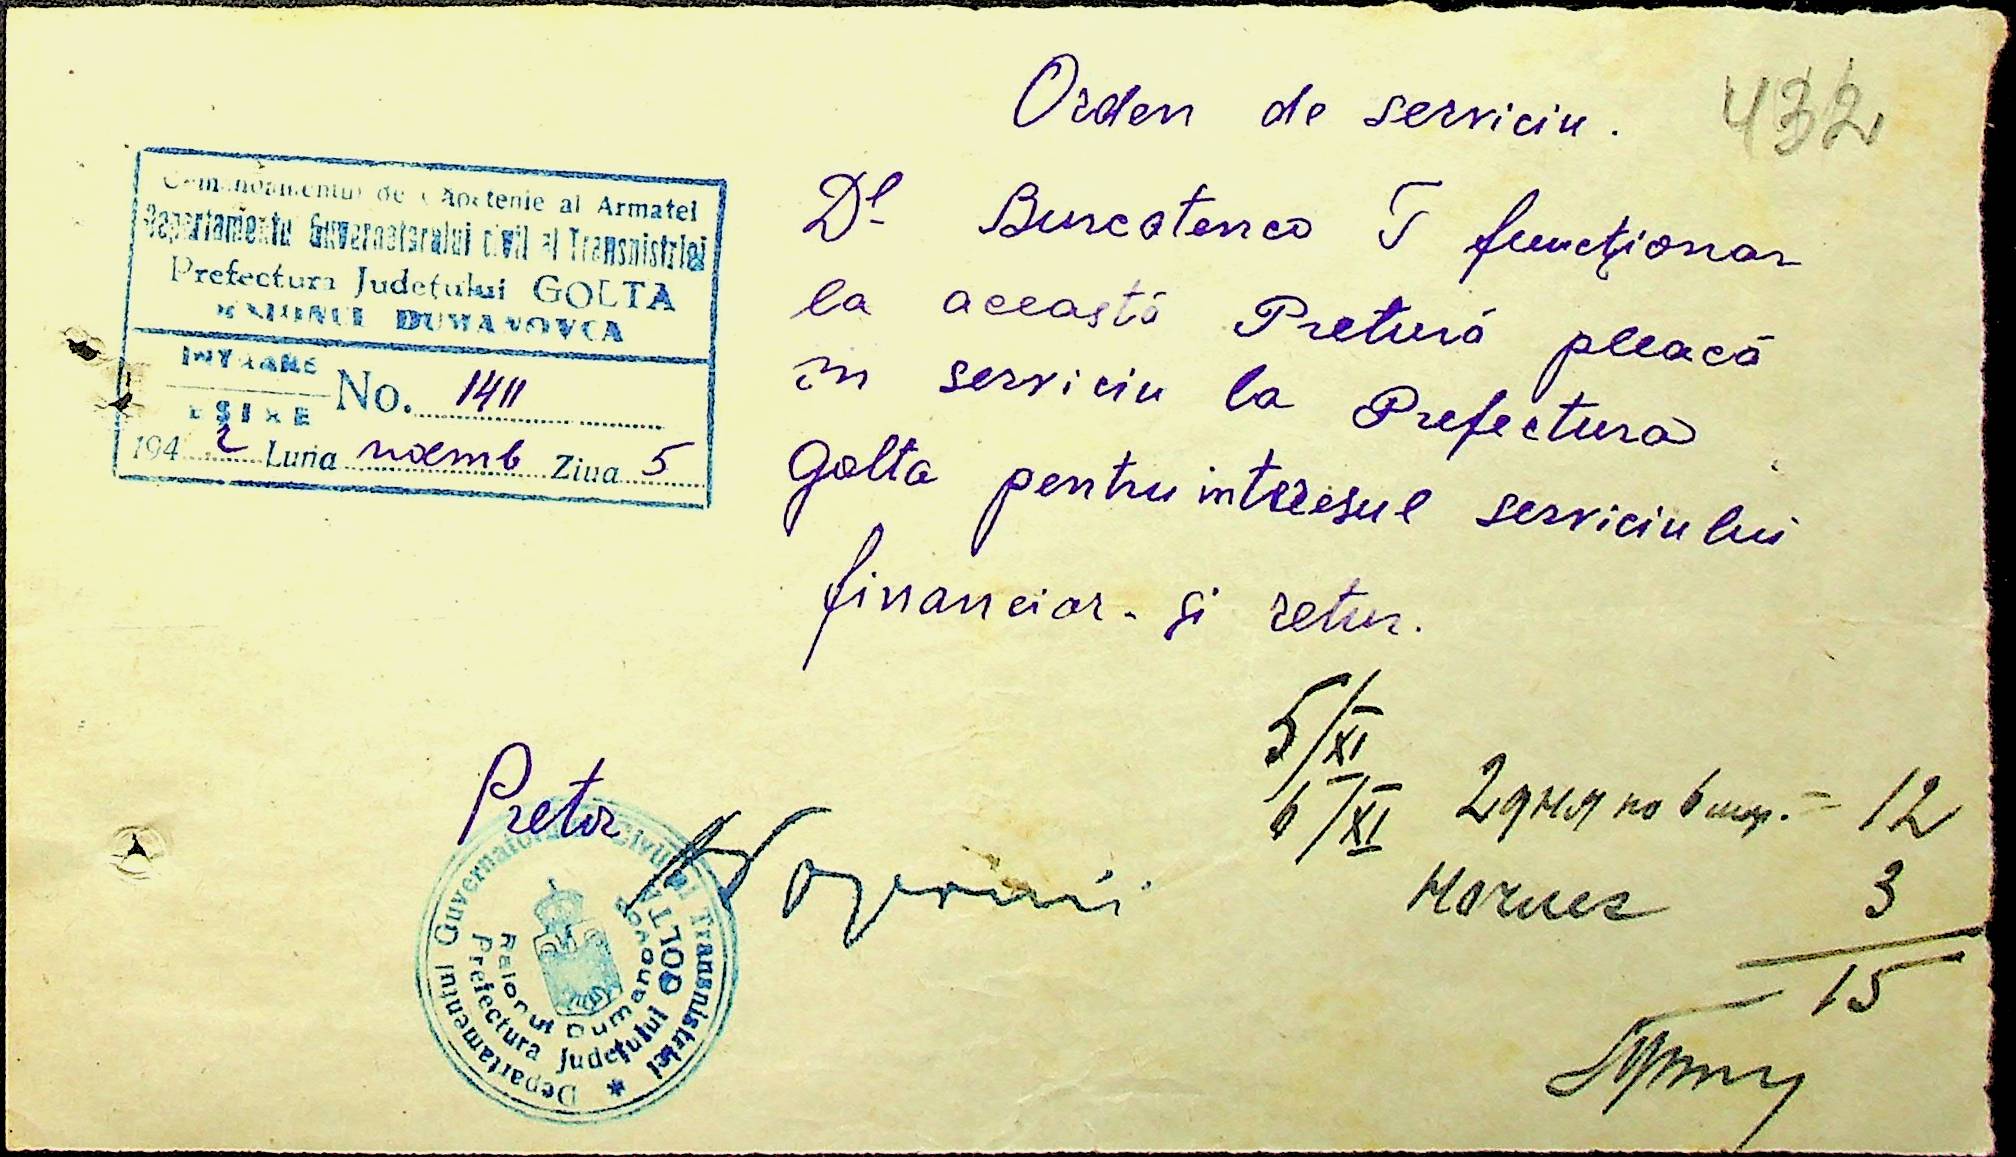 Orden de serviciu.
432
Comandamentul de Căpetenie al Armatei
Departamentu Guvernatorului civil al Transnistriei
Prefectura Județului GOLTA
RAIONUL DUMANOVCA
INTRARE
EȘIRE
No. 1411
194 2 Luna noemb Ziua 5
Dl Burcatenco T funcționar
la această Pretură pleacă
în serviciu la Prefectura
Golta pentru interesul serviciului
financiar. și retur.
Pretor
5/XI
6/XI
2 дня по 6 = 12
3
15
Departamentul Guvernatorul Civil al Transnistriei *
Prefectura Județului GOLTA
Raionul Dumanovca